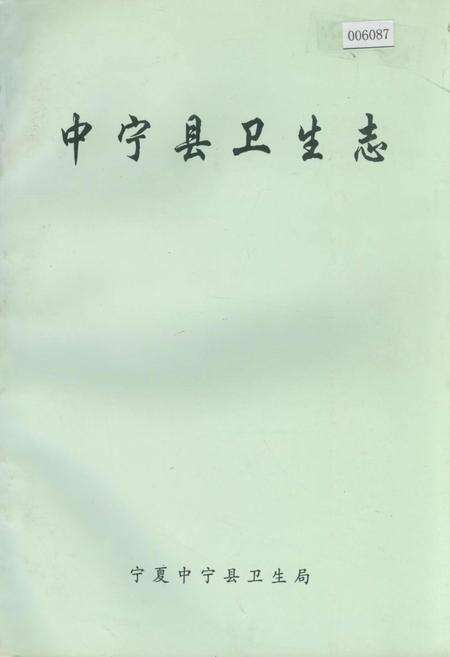 006087
中宁县卫生志
宁夏中宁县卫生局